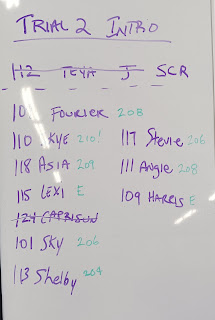 TRIAL 2 INTRO
112 TEYA J SCR
10 FOURIER 208
110 KYE 210!
118 ASIA 209
115 LEXI E
124 CAPRISUN
101 SKY 206
113 Shelby 204
117 Stevie 206
111 Angie 208
109 HARRIS E